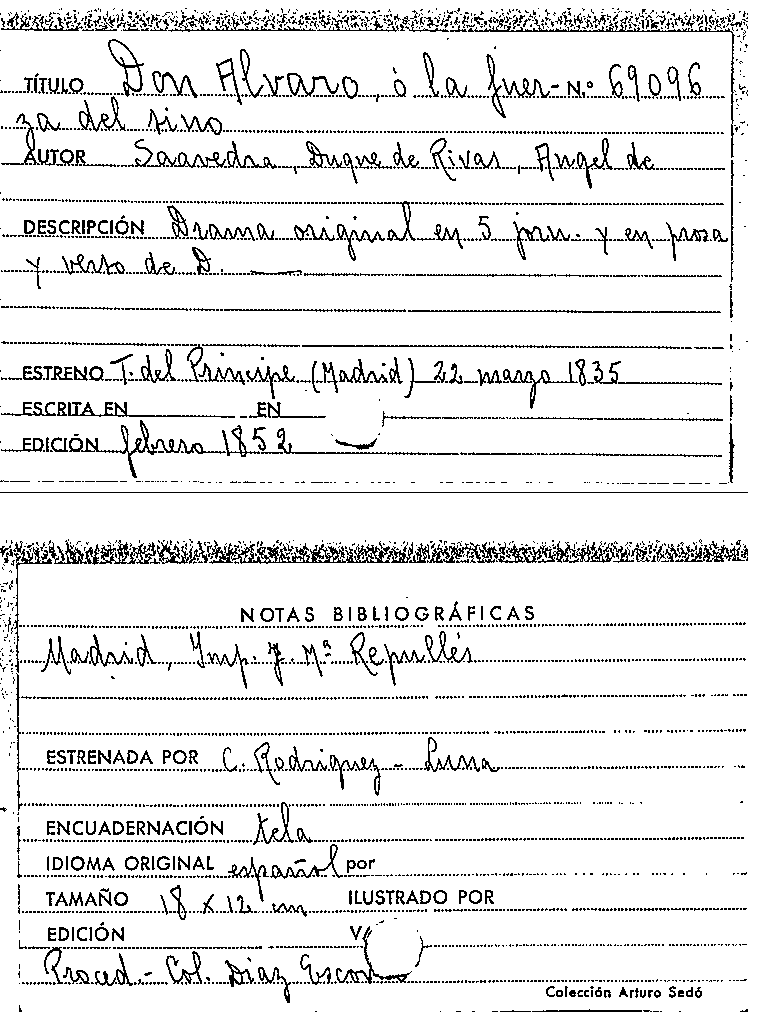 TÍTULO Don Alvaro, ó la fuer- N.º 69096
za del sino
AUTOR Saavedra, Duque de Rivas, Angel de
DESCRIPCIÓN Drama original en 5 jorn. y en prosa
y verso de D. ___
ESTRENO T. del Príncipe (Madrid) 22 marzo 1835
ESCRITA EN EN
EDICIÓN febrero 1852
NOTAS BIBLIOGRÁFICAS
Madrid, Imp. J. Mª Repullés
ESTRENADA POR C. Rodriguez - Luna
ENCUADERNACIÓN tela
IDIOMA ORIGINAL español por
TAMAÑO 18 x 12 cm ILUSTRADO POR
EDICIÓN
Proced.- Col. Díaz
Colección Arturo Sedó